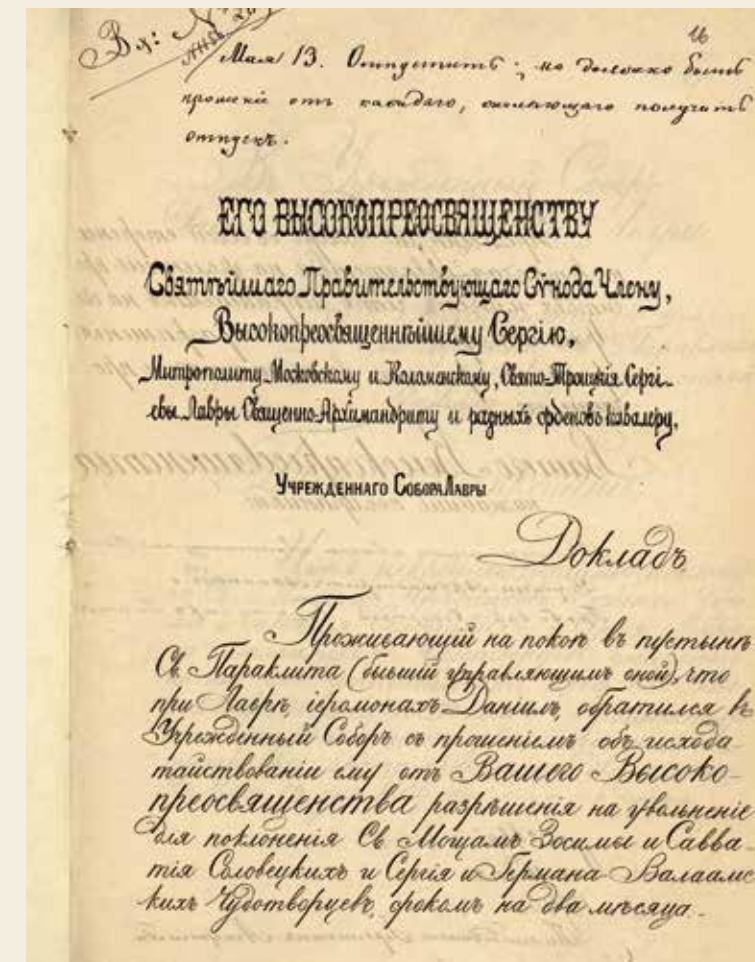 Вх: №
16
Мая 13. Отпустить; но должно быть
прошенiе отъ каждаго, желающаго получить
отпускъ.
ЕГО ВЫСОКОПРЕОСВЯЩЕНСТВУ
Святѣйшаго Правительствующаго Сѵнода Члену,
Высокопреосвященнѣйшему Сергiю,
Митрополиту Московскому и Коломенскому, Свято-Троицкiя Сергi-
евы Лавры Священно-Архимандриту и разныхъ орденовъ кавалеру,
Учрежденнаго Собора Лавры
Докладъ
Проживающiй на покоѣ въ пустынѣ
Св. Параклита (бывшiй управляющимъ оной), что
при Лаврѣ, iеромонахъ Данiилъ, обратился въ
Учрежденный Соборъ съ прошенiемъ объ исхода-
тайствованiи ему отъ Вашего Высоко-
преосвященства разрѣшенiя на увольненiе
для поклоненiя Св. Мощамъ Зосимы и Савва-
тiя Соловецкихъ и Сергiя и Германа Валаамс
кихъ Чудотворцевъ, срокомъ на два мѣсяца.